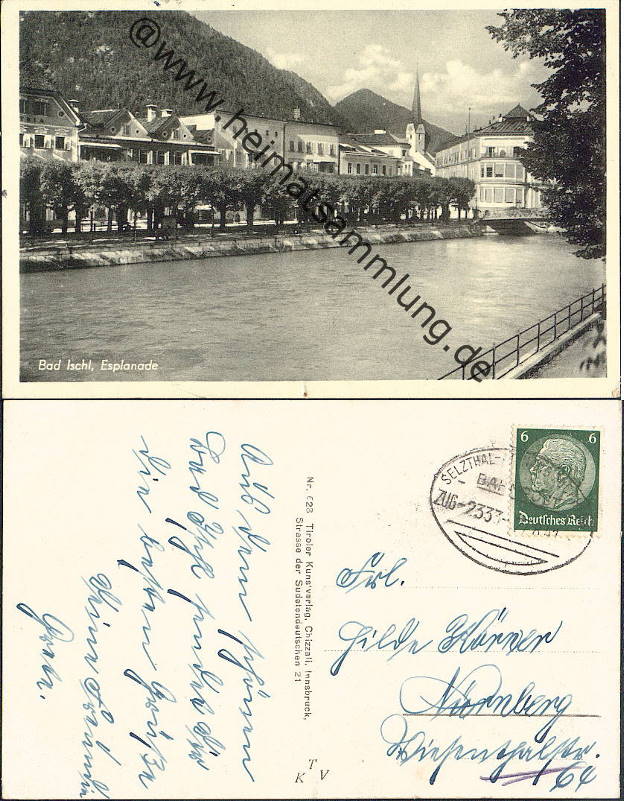 @www.heimatsammlung.de
Bad Ischl, Esplanade
Aus dem schönen
Bad Ischl sendet Dir
die besten Grüße
Deine Freundin
Grete.
Nr. 623 Tiroler Kunstverlag, Chizzali, Innsbruck,
Strasse der Sudetendeutschen 21
K T V
SELZTHAL-
BAHNPOST
ZUG-2333
6 6
Deutsches Reich
Frl.
Hilde Körner
Nürnberg
Wiesenthalstr.
64